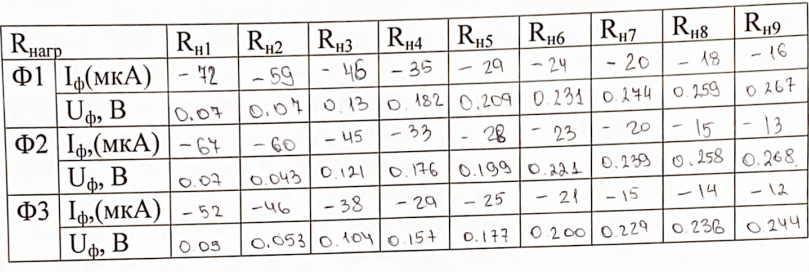 Rнагр Rн1 Rн2 Rн3 Rн4 Rн5 Rн6 Rн7 Rн8 Rн9
Ф1 Iф(мкА) -72 -59 -46 -35 -29 -24 -20 -18 -16
Uф, В 0.07 0.07 0.13 0.182 0.209 0.231 0.274 0.259 0.267
Ф2 Iф,(мкА) -67 -60 -45 -33 -28 -23 -20 -15 -13
Uф, В 0.07 0.043 0.121 0.176 0.199 0.221 0.239 0.258 0.268
Ф3 Iф,(мкА) -52 -46 -38 -29 -25 -21 -15 -14 -12
Uф, В 0.05 0.053 0.104 0.157 0.177 0.200 0.229 0.236 0.244